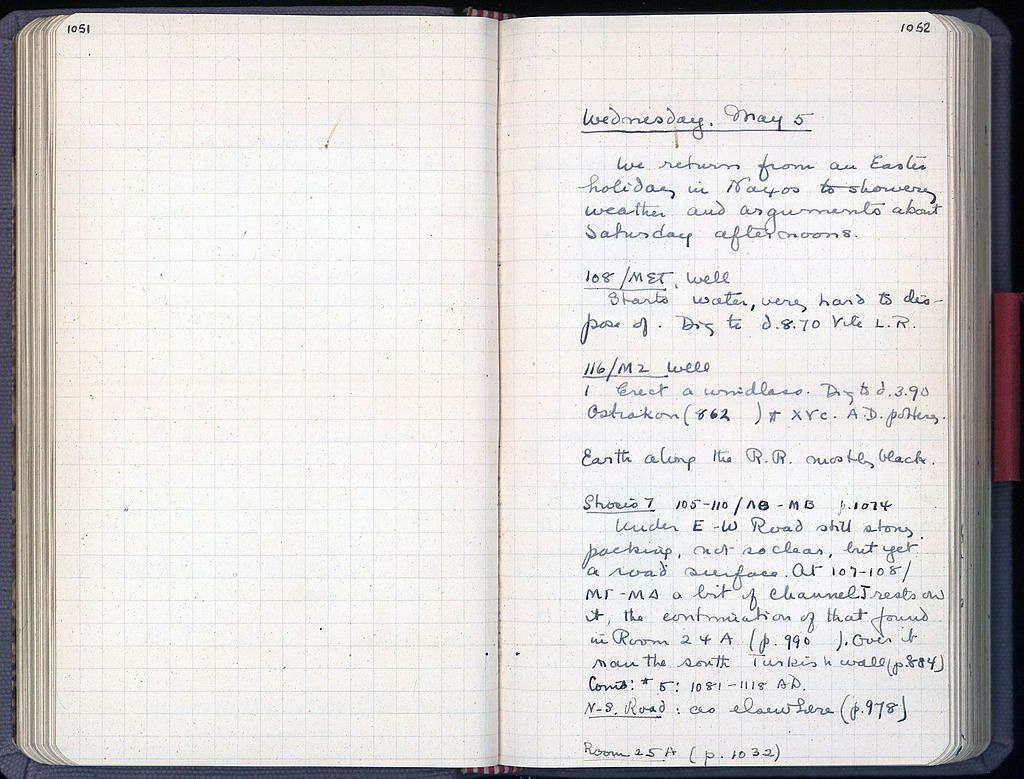 1051
1052
Wednesday. May 5
We return from an Easter
holiday in Naxos to showery
weather and arguments about
Saturday afternoons.
108/MET, Well
Starts water, very hard to dis-
pose of. Dig to d. 8.70 Vile L.R.
116/MZ Well
1 Erect a windlass. Dig to d. 3.90
Ostrakon (862 ) # XV c. A.D. pottery.
Earth along the R.R. mostly black.
Strosis 7 105-110/ΛΘ-MB p. 1074
Under E-W Road still stony
packing, not so clear, but yet
a road surface. At 107-108/
MΓ-MΔ a bit of channel J rests on
it, the continuation of that found
in Room 24 A (p. 990 ). Over it
ran the south Turkish wall (p. 884)
Coins: # 5: 1081-1118 AD.
N-S. Road: as elsewhere (p. 978)
Room 25 A (p. 1032)